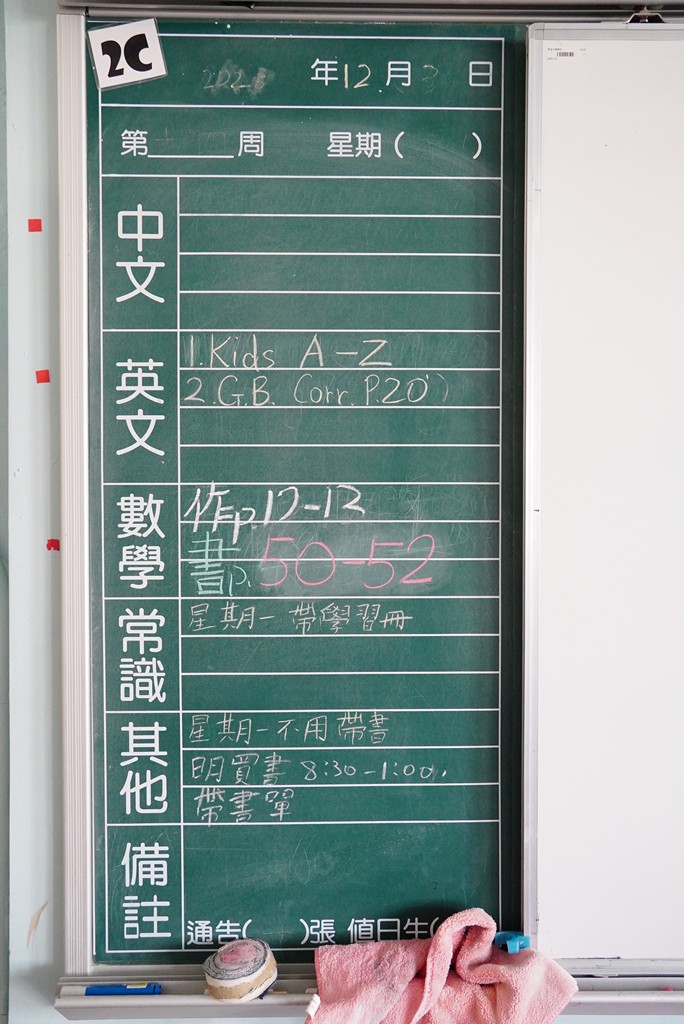 2C
年12月 日
第 周 星期( )
中文
英文
1. Kids A-Z
2. G.B. Corr. P.20)
數學
作p.12-13
書p.50-52
常識
星期一帶學習冊
其他
星期一不用帶書
明買書 8:30-1:00.
帶書單
備註
通告( )張 值日生(